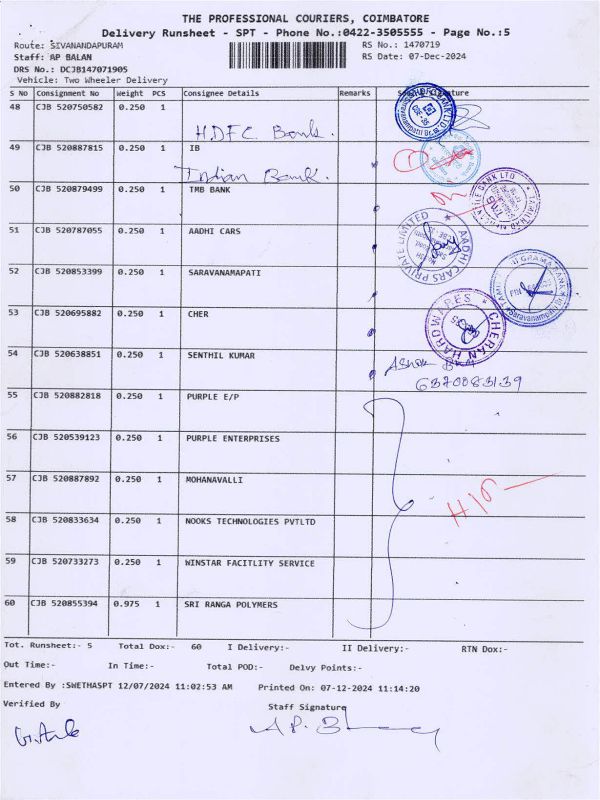 THE PROFESSIONAL COURIERS, COIMBATORE
Delivery Runsheet - SPT - Phone No.:0422-3505555 - Page No.:5
Route: SIVANANDAPURAM RS No.: 1470719
Staff: AP BALAN RS Date: 07-Dec-2024
DRS No.: DCJB147071905
Vehicle: Two Wheeler Delivery
S No Consignment No Weight PCS Consignee Details Remarks Signature
48 CJB 520750582 0.250 1
HDFC Bank.
49 CJB 520887815 0.250 1 IB
Indian Bank.
50 CJB 520879499 0.250 1 TMB BANK
51 CJB 520787055 0.250 1 AADHI CARS
AADHI CARS PRIVATE LIMITED
52 CJB 520853399 0.250 1 SARAVANAMPATI
53 CJB 520695882 0.250 1 CHER
CHERAN HARDWARES
54 CJB 520638851 0.250 1 SENTHIL KUMAR
6370083139
55 CJB 520882818 0.250 1 PURPLE E/P
56 CJB 520539123 0.250 1 PURPLE ENTERPRISES
57 CJB 520887892 0.250 1 MOHANAVALLI
58 CJB 520833634 0.250 1 NOOKS TECHNOLOGIES PVTLTD
59 CJB 520733273 0.250 1 WINSTAR FACITLITY SERVICE
60 CJB 520855394 0.975 1 SRI RANGA POLYMERS
Tot. Runsheet:- 5 Total Dox:- 60 I Delivery:- II Delivery:- RTN Dox:-
Out Time:- In Time:- Total POD:- Delvy Points:-
Entered By :SWETHASPT 12/07/2024 11:02:53 AM Printed On: 07-12-2024 11:14:20
Verified By Staff Signature